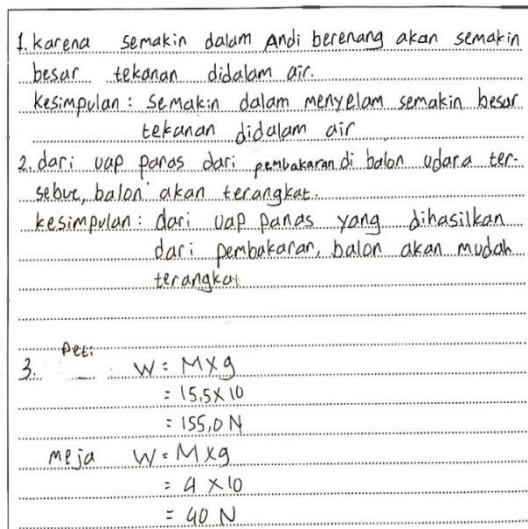 1. karena semakin dalam Andi berenang akan semakin
besar tekanan didalam air.
kesimpulan : semakin dalam menyelam semakin besar
tekanan didalam air
2. dari uap panas dari pembakaran di balon udara ter-
sebut, balon akan terangkat.
kesimpulan : dari uap panas yang dihasilkan
dari pembakaran, balon akan mudah
terangkat
Peti
3. W = M x g
= 15,5 x 10
= 155,0 N
meja W = M x g
= 4 x 10
= 40 N